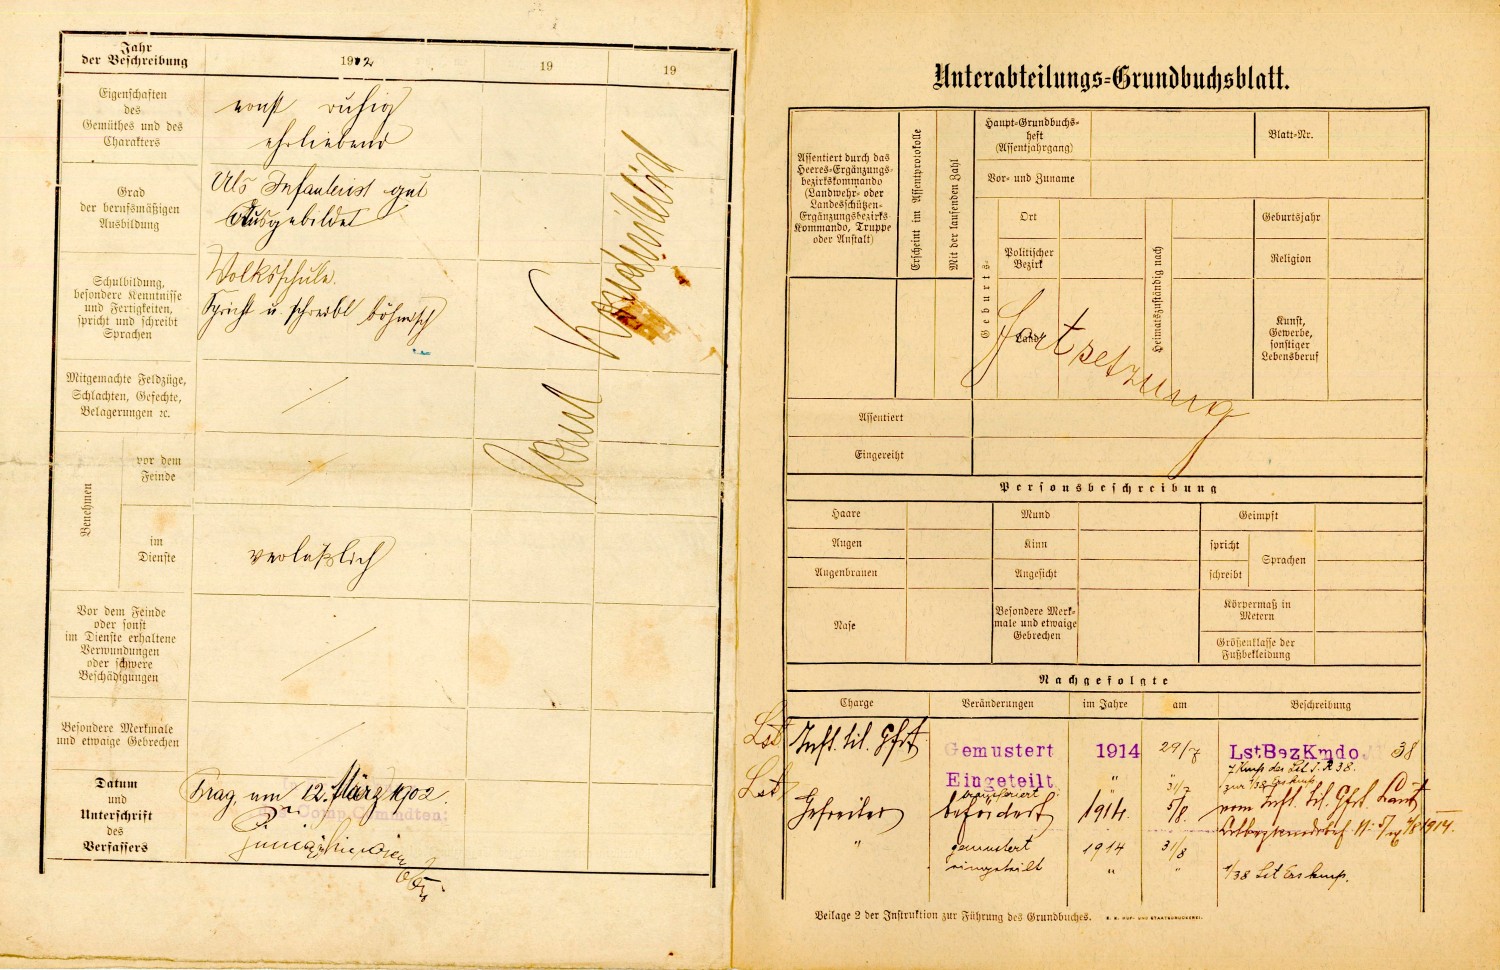 Jahr
der Beschreibung
1902
19
19
Eigenschaften
des
Gemüthes und des
Charakters
ernst ruhig
ehrliebend
Grad
der berufsmäßigen
Ausbildung
Als Infanterist gut
Ausgebildet
Schulbildung,
besondere Kenntnisse
und Fertigkeiten,
spricht und schreibt
Sprachen
Volksschule.
Spricht u. schreibt böhmisch
Mitgemachte Feldzüge,
Schlachten, Gefechte,
Belagerungen ꝛc.
Benehmen
vor dem
Feinde
im
Dienste
verläßlich
Vor dem Feinde
oder sonst
im Dienste erhaltene
Verwundungen
oder schwere
Beschädigungen
Besondere Merkmale
und etwaige Gebrechen
Datum
und
Unterschrift
des
Verfassers
Prag, am 12. März 1902.
Comp. Commdten:
Unterabteilungs-Grundbuchsblatt.
Assentiert durch das
Heeres-Ergänzungs-
bezirkskommando
(Landwehr- oder
Landesschützen-
Ergänzungsbezirks-
Kommando, Truppe
oder Anstalt)
Erscheint im Assentprotokolle
Mit der laufenden Zahl
Haupt-Grundbuchs-
heft
(Assentjahrgang)
Blatt-Nr.
Vor- und Zuname
Geburts-
Ort
Politischer
Bezirk
Land
Heimatszuständig nach
Geburtsjahr
Religion
Kunst,
Gewerbe,
sonstiger
Lebensberuf
Fortsetzung
Assentiert
Eingereiht
Personsbeschreibung
Haare
Mund
Geimpft
Augen
Kinn
spricht
Sprachen
Augenbrauen
Angesicht
schreibt
Nase
Besondere Merk-
male und etwaige
Gebrechen
Körpermaß in
Metern
Größenklasse der
Fußbekleidung
Nachgefolgte
Charge
Veränderungen
im Jahre
am
Beschreibung
Lst Inft. tit. Gfrt.
Gemustert 1914 29/7 LstBezKmdo. 38
Lst
Eingeteilt " 31/7
Gefreiter befördert 1914. 5/8. vom Inft. tit. Gfrt.
" gemustert 1914 31/8
eingeteilt " " 1/38 Lst Ers Komp.
Beilage 2 der Instruktion zur Führung des Grundbuches.
K. K. HOF- UND STAATSDRUCKEREI.